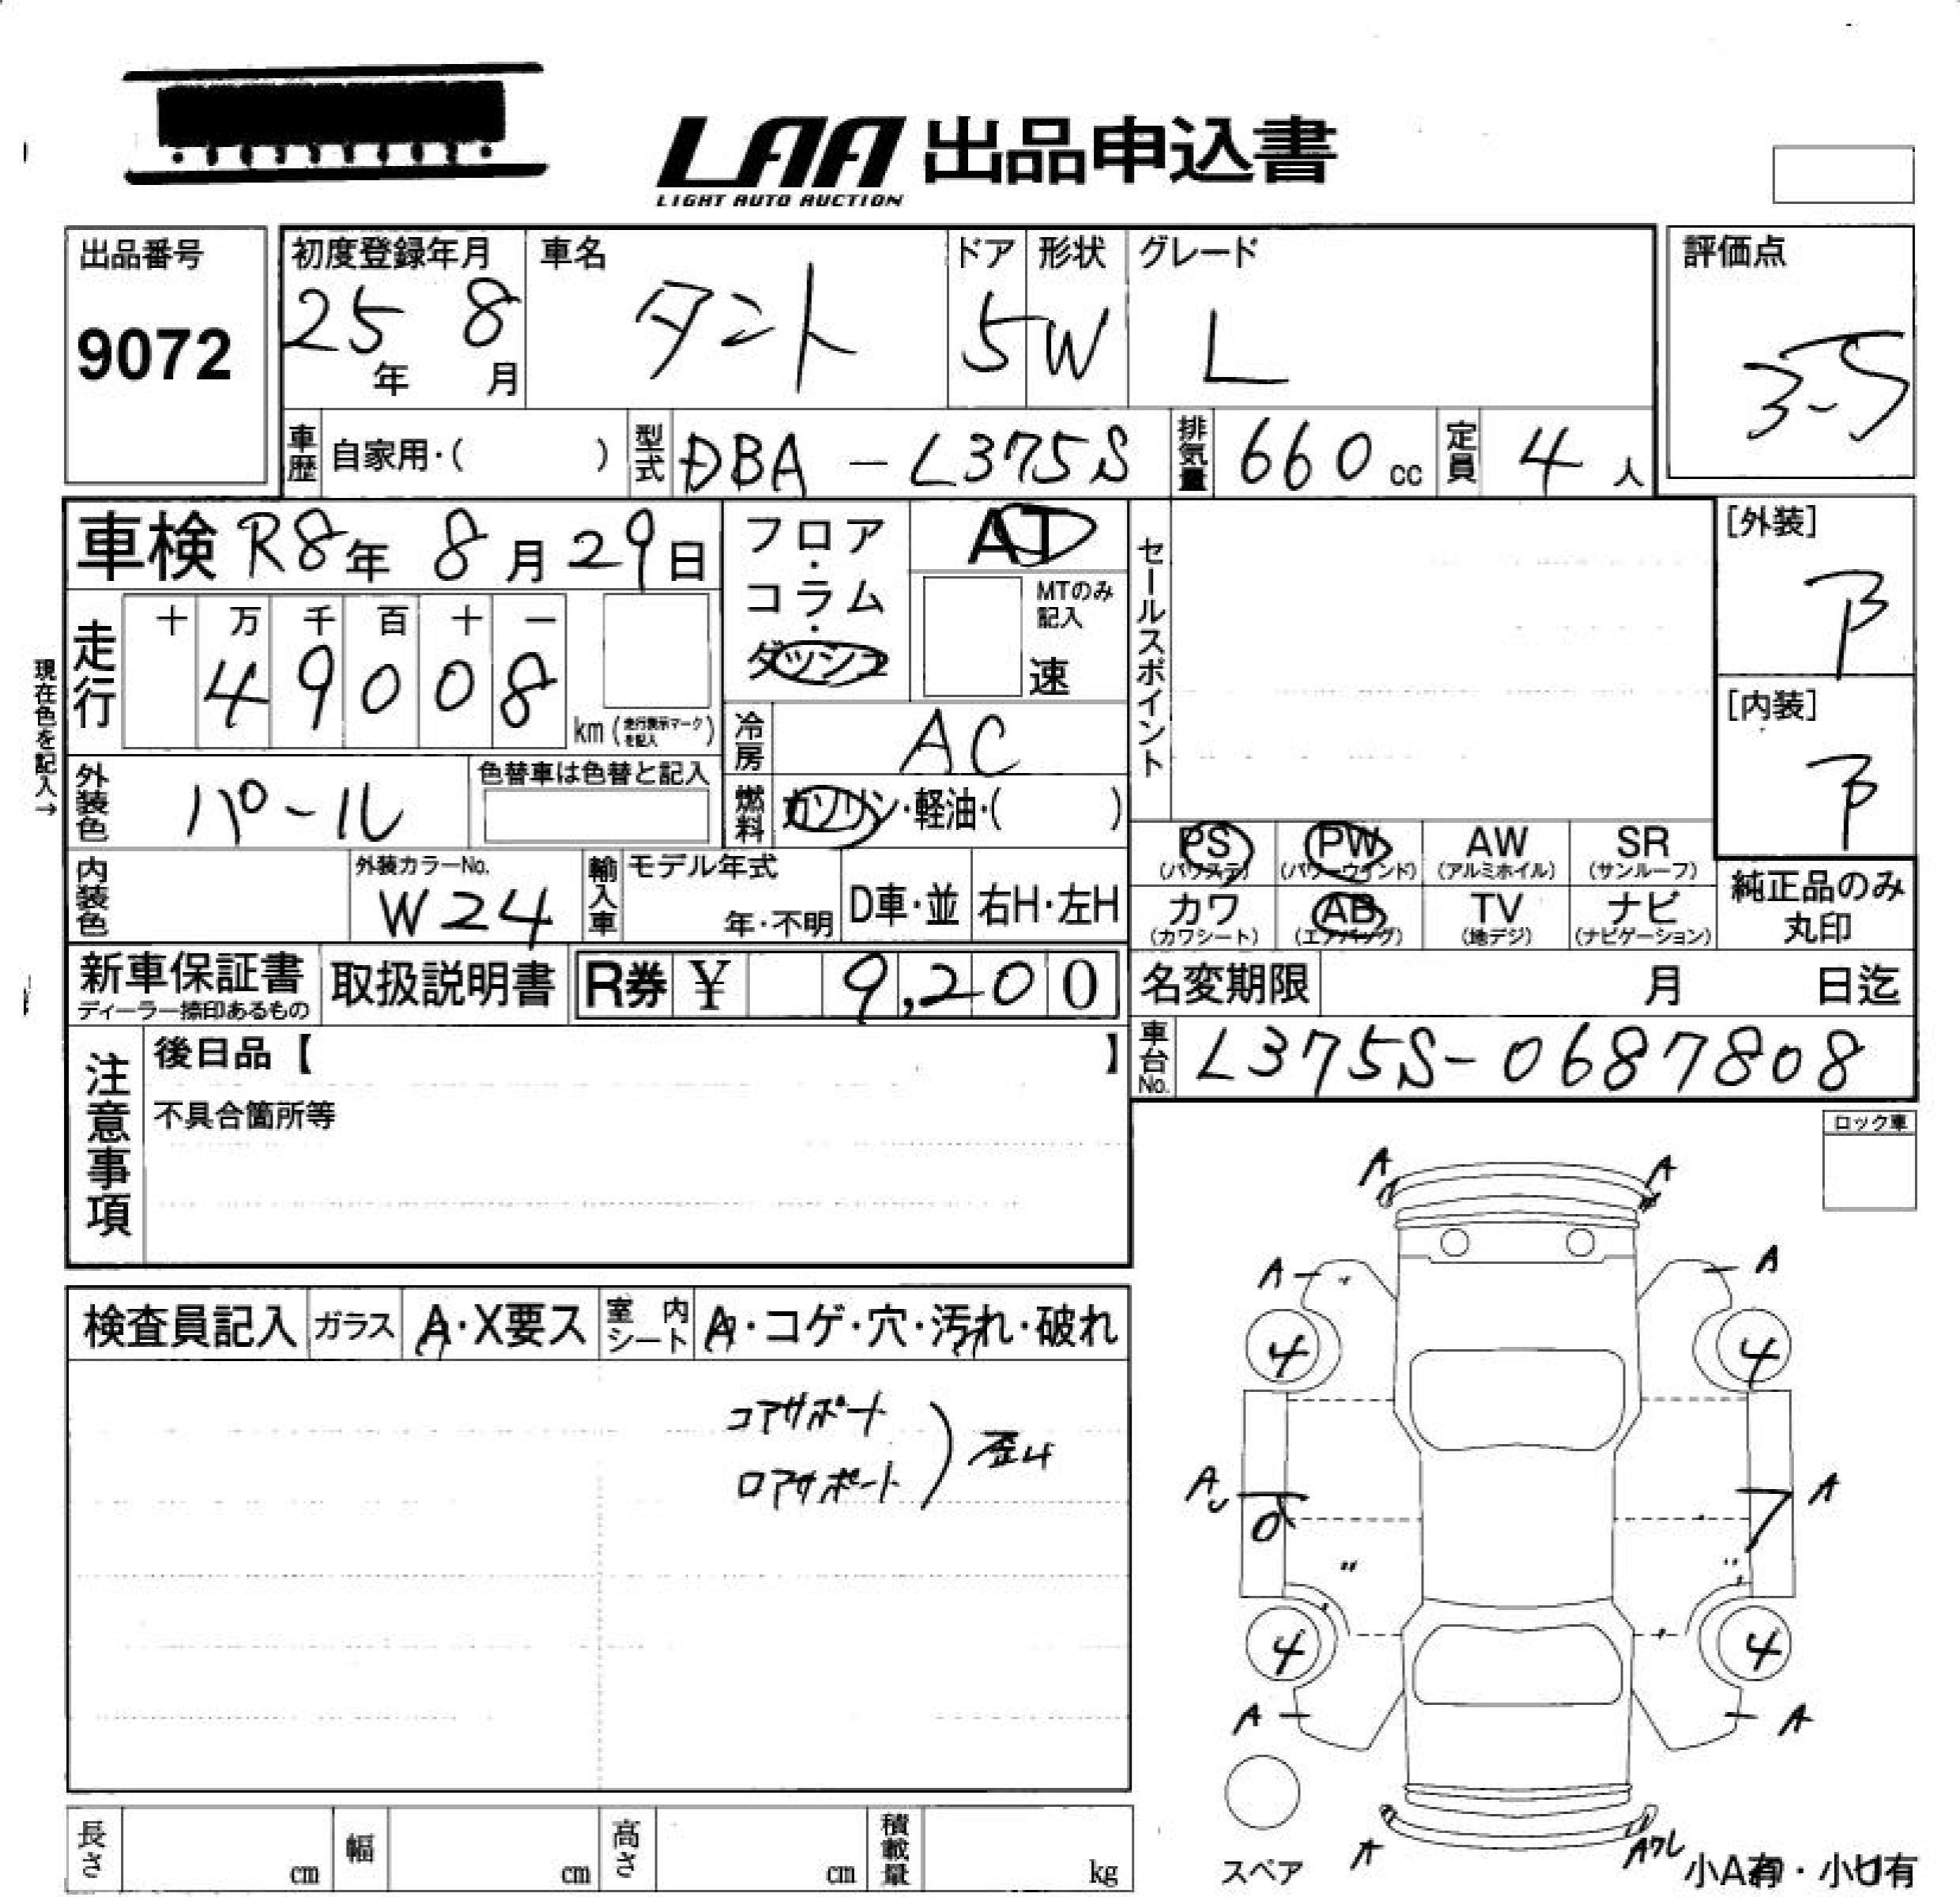 LAA 出品申込書
LIGHT AUTO AUCTION
出品番号
9072
初度登録年月
25年 8月
車名
タント
ドア
5
形状
W
グレード
L
評価点
3.5
車歴 自家用・( )
型式 DBA-L375S
排気量 660cc
定員 4人
車検 R8年 8月29日
フロア・コラム・ダッシュ
AT
MTのみ記入
速
セールスポイント
[外装]
B
[内装]
B
現在色を記入→
走行
十 万 千 百 十 一
4 9 0 0 8
km(走行表示マークを記入)
冷房 AC
外装色 パール
色替車は色替と記入
燃料 ガソリン・軽油・( )
内装色
外装カラーNo.
W24
輸入車
モデル年式
年・不明
D車・並
右H・左H
PS
(パワステ)
PW
(パワーウインド)
AW
(アルミホイル)
SR
(サンルーフ)
カワ
(カワシート)
AB
(エアバッグ)
TV
(地デジ)
ナビ
(ナビゲーション)
純正品のみ
丸印
新車保証書
ディーラー捺印あるもの
取扱説明書
R券 ¥ 9,200
名変期限 月 日迄
車台No. L375S-0687808
注意事項
後日品【 】
不具合箇所等
ロック車
検査員記入
ガラス A・X要ス
室内シート A・コゲ・穴・汚れ・破れ
コアサポート
ロアサポート
) 歪み
A A
A A
4 4
A A
7
〃 〃
4 4
A A
スペア
A
小A有・小U有
長さ cm
幅 cm
高さ cm
積載量 kg